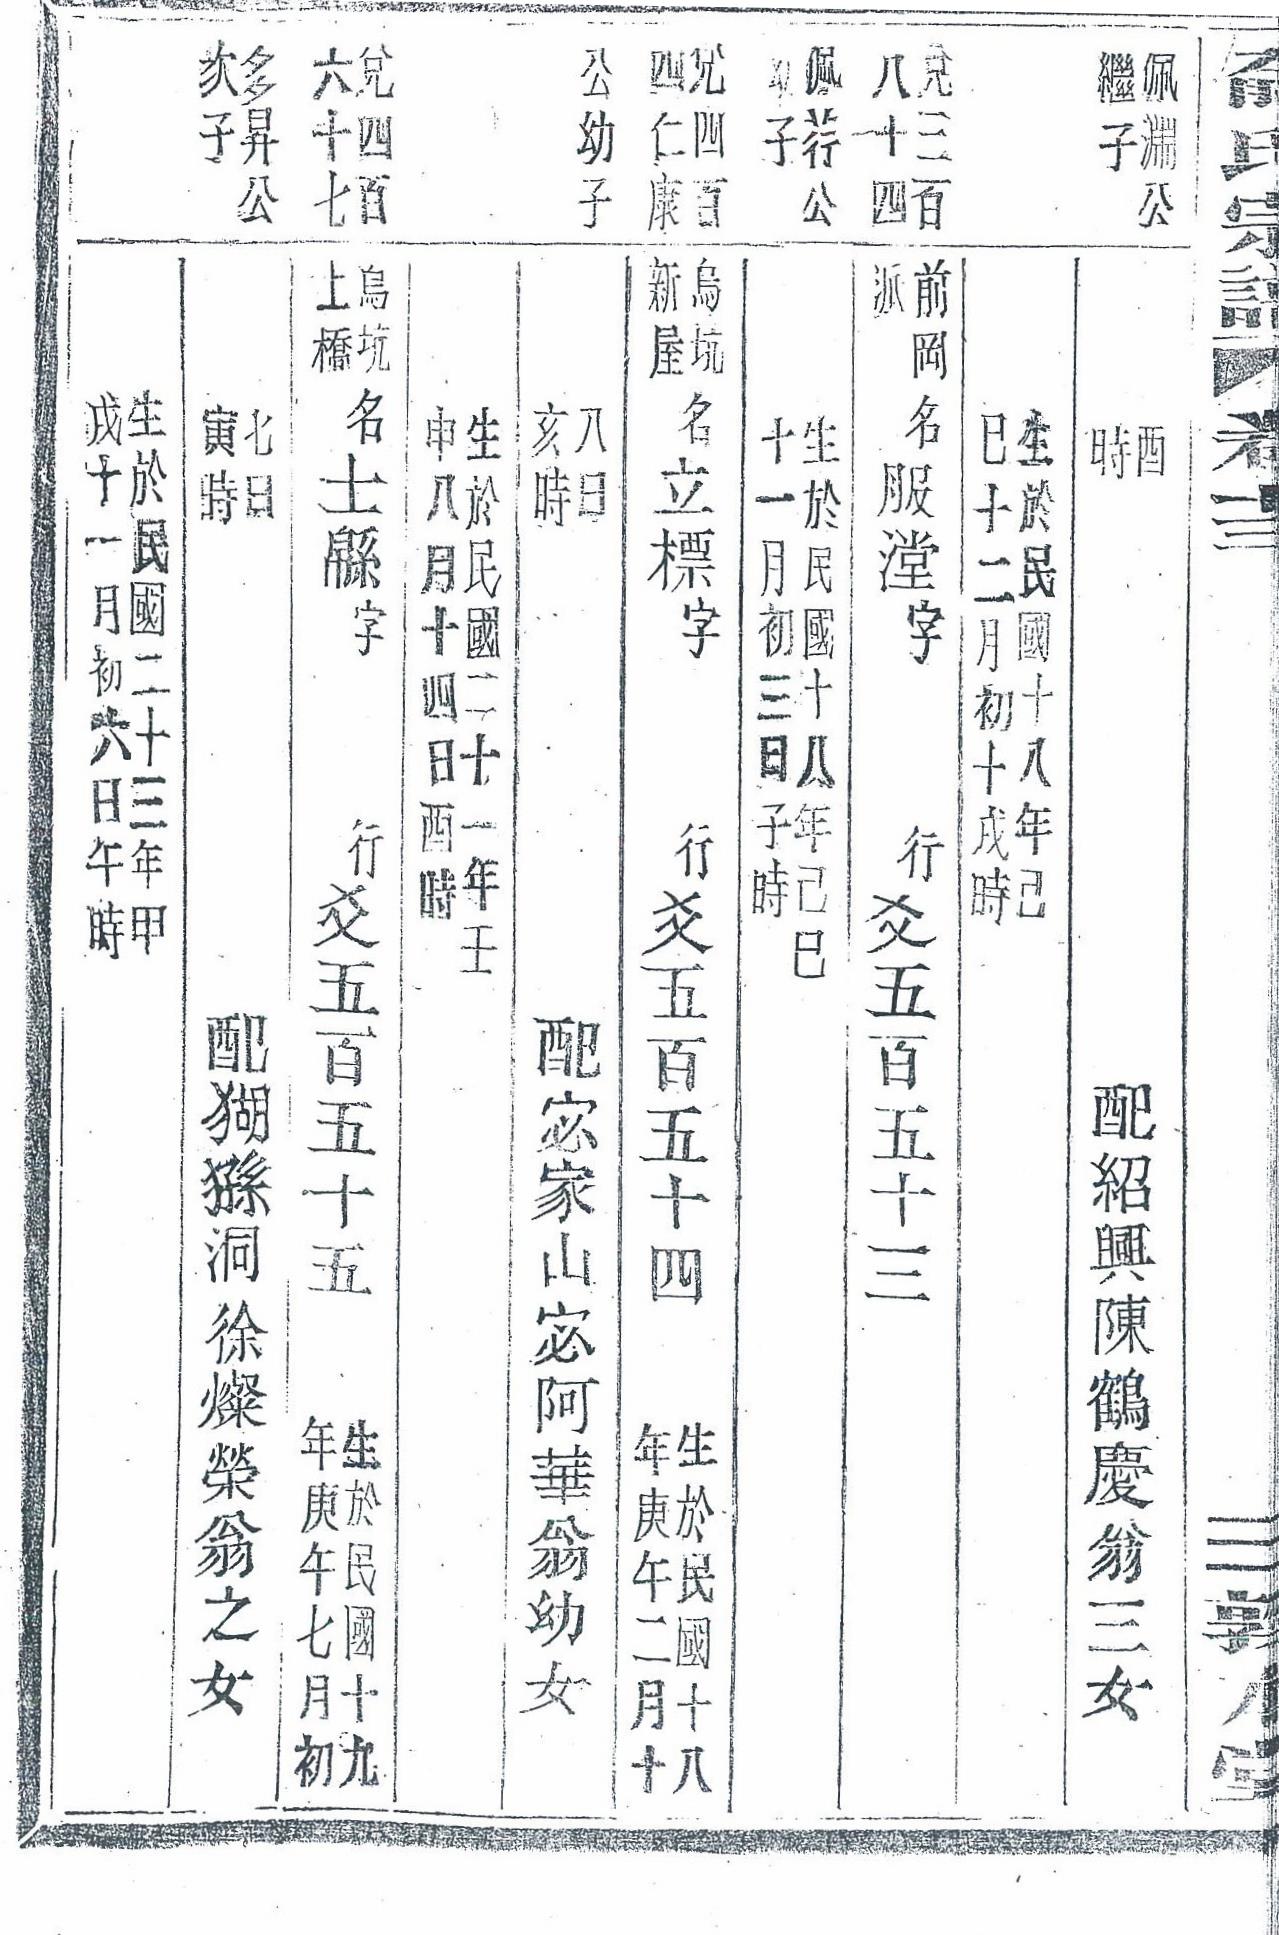 氏宗譜
卷十三
三
佩淵公
繼子
酉
時
配紹興陳鶴慶翁三女
生於民國十八年己
巳十二月初十戌時
兌三百
八十四
前岡
派
名服漟字
行爻五百五十三
佩荇公
幼子
生於民國十八年己巳
十一月初三日子時
兌四百
四仁康
烏坑
新屋
名立標字
行爻五百五十四
生於民國十八
年庚午二月十
公幼子
八日
亥時
配宓家山宓阿華翁幼女
生於民國二十一年壬
申八月十四日酉時
兌四百
六十七
烏坑
上橋
名士緜字
行爻五百五十五
生於民國十九
年庚午七月初
多昇公
次子
七日
寅時
配猢猻洞徐燦榮翁之女
生於民國二十三年甲
戌十一月初六日午時